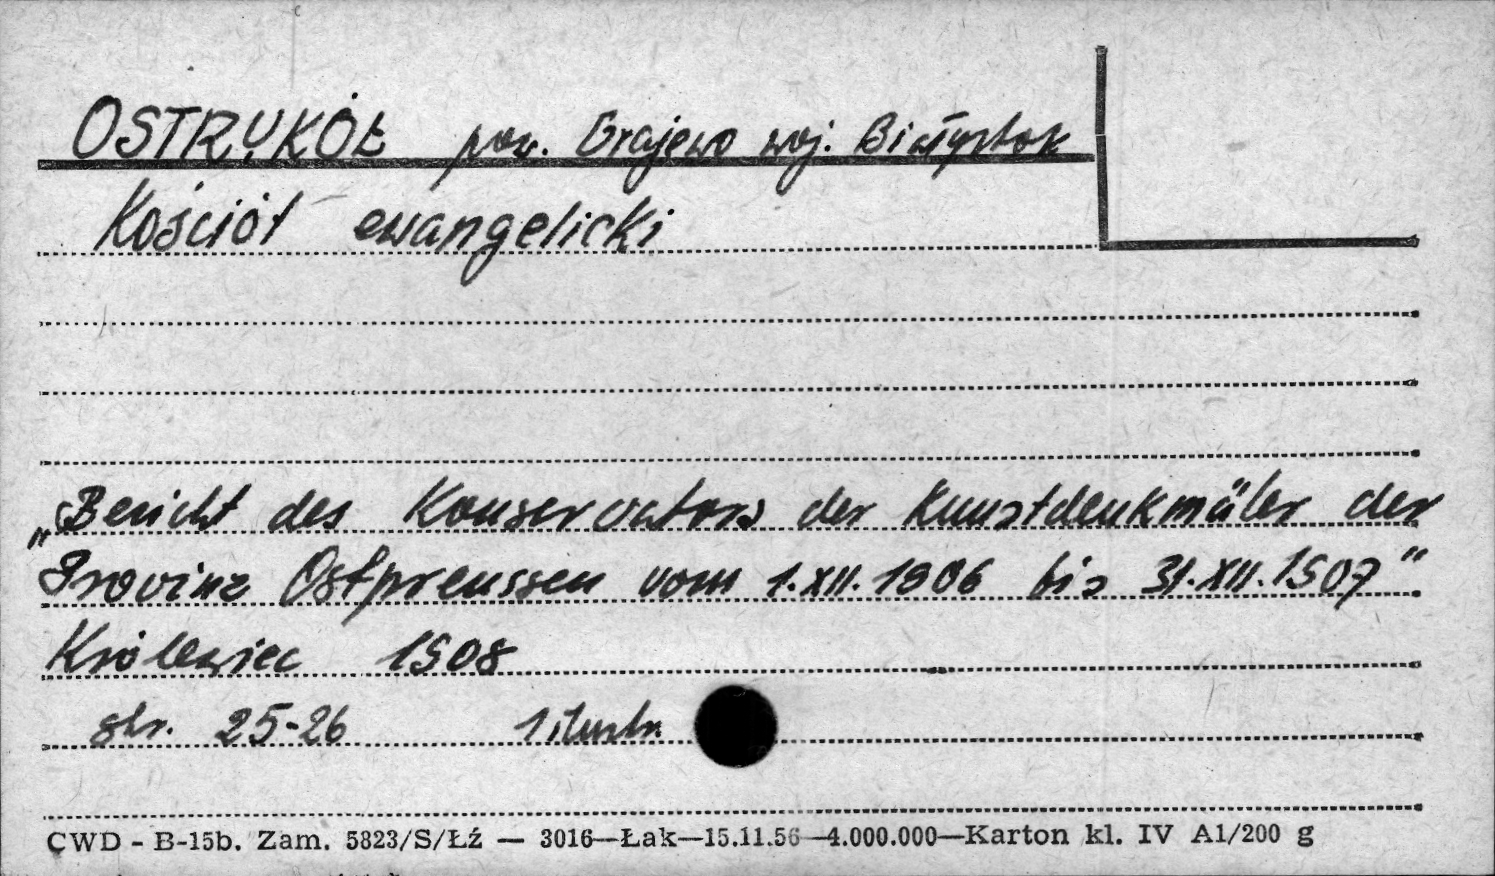 OSTRYKÓŁ pow. Grajewo woj. Białystok
Kościół ewangelicki
„Bericht des Konservators der Kunstdenkmäler der
Provinz Ostpreussen vom 1.XII.1906 bis 31.XII.1907"
Królewiec 1908
str. 25-26 1 ilustr.
CWD - B-15b. Zam. 5823/S/Łź — 3016—Łak—15.11.56—4.000.000—Karton kl. IV A1/200 g